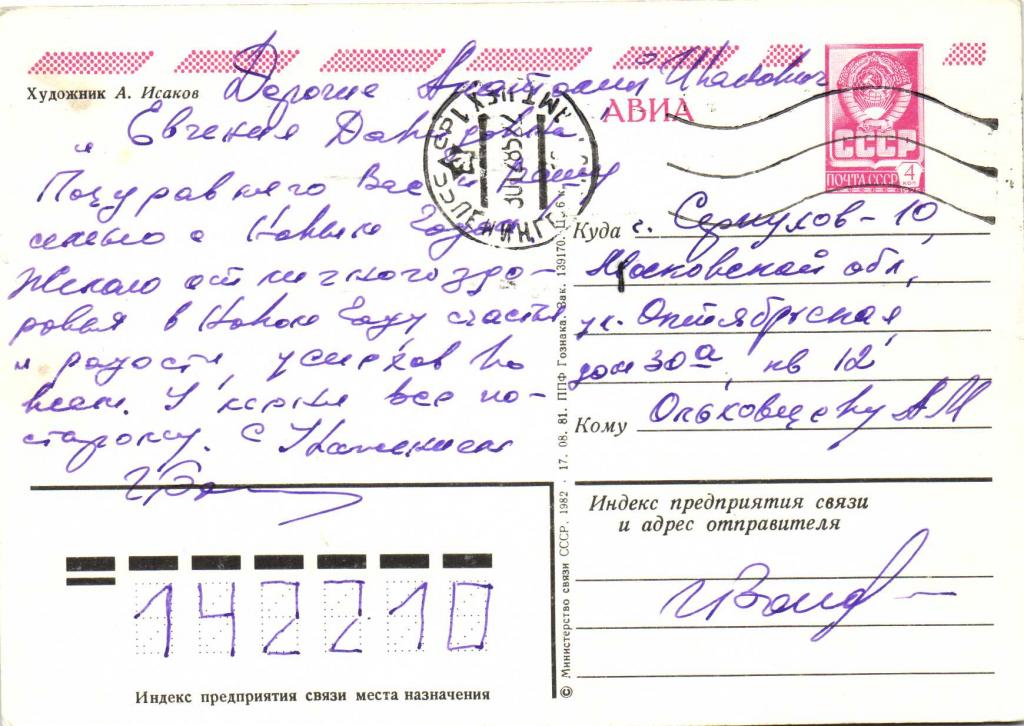 Художник А. Исаков
Дорогие Анатолий Иванович
и Евгения Давыдовна.
Поздравляю Вас и Вашу
семью с Новым Годом!
Желаю отличного здо-
ровья в Новом Году счастья
и радости, успехов во
всем. У меня все по-
старому. С Уважением
АВИА
СССР
ПОЧТА СССР 4 КОП
СССР ЛЕНИНГРАД
Куда г. Серпухов-10,
Московской обл,
ул. Октябрьская
дом 30а, кв 12
Кому Ольховцеву АМ
Индекс предприятия связи
и адрес отправителя
142210
Индекс предприятия связи места назначения
© Министерство связи СССР. 1982 . 17. 08. 81. ППФ Гознака. Зак. 139170. Ц. 6 к.